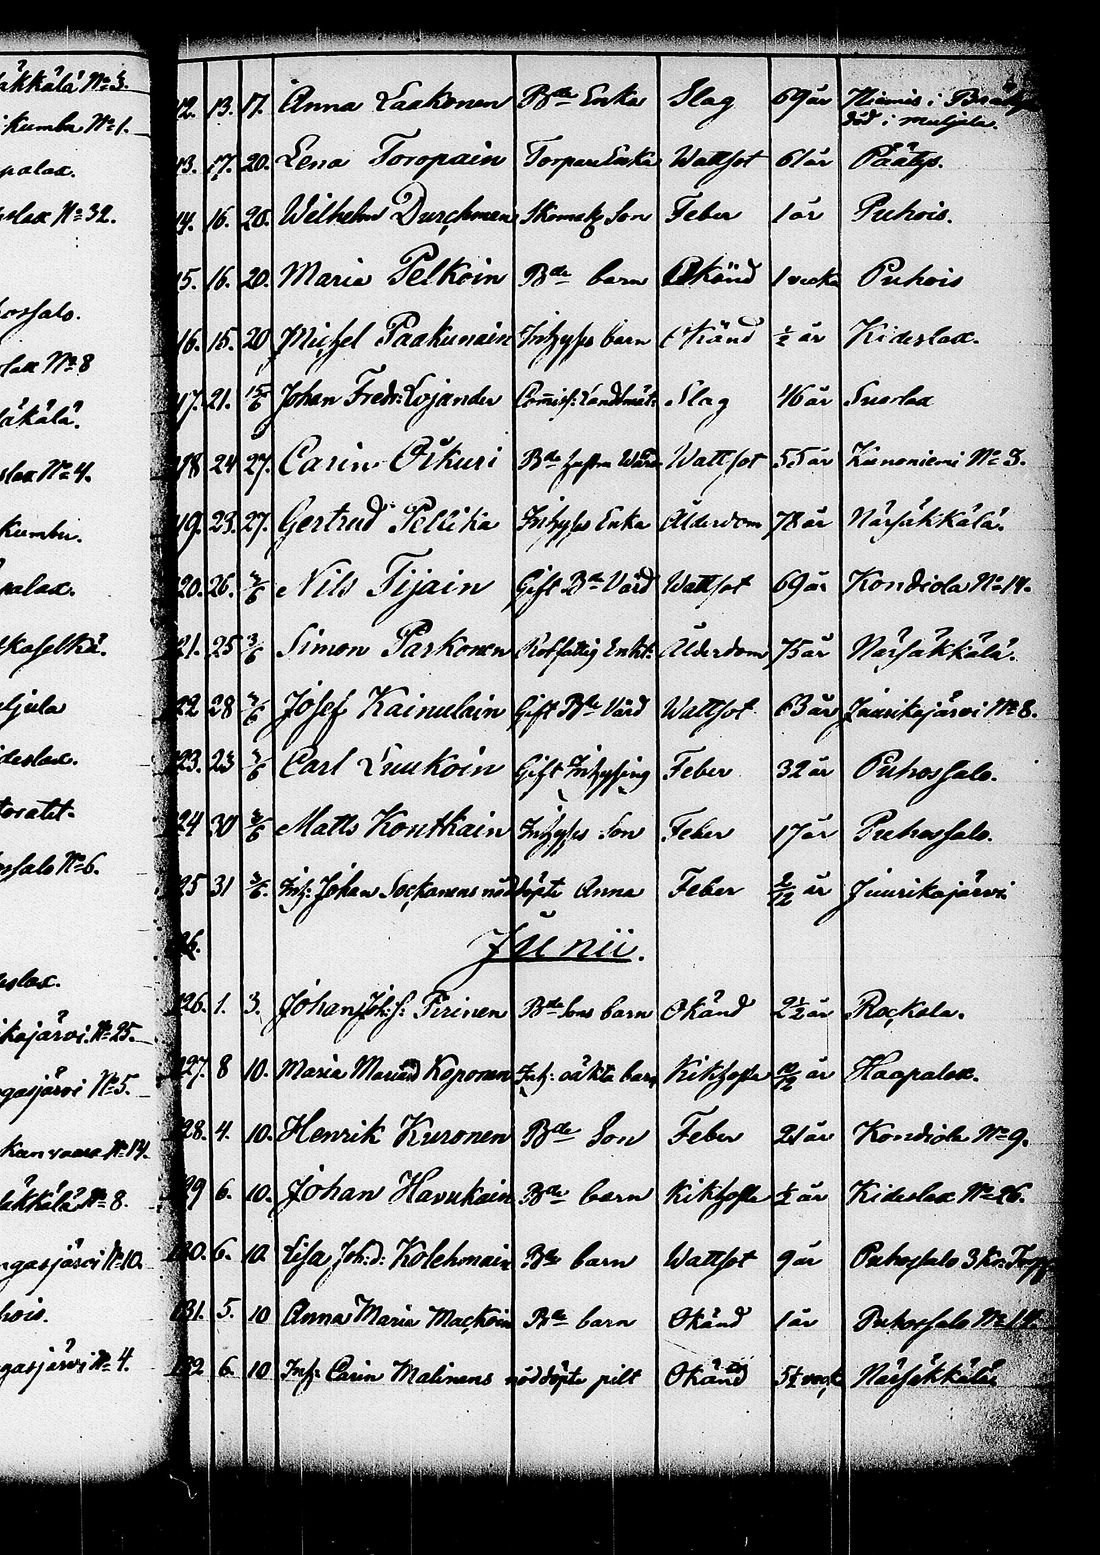 äkkälä No 3.
kumbu No 1.
palax.
slax No 32.
horsalo.
slax No 8
äkälä.
slax No 4.
kumbu.
palax.
kaselkä.
eljula
ideslax.
toratet.
orsalo No 6.
eslax.
ikajärvi. No 25.
ngasjärvi No 5.
kanvaara No 14.
äkkälä No 8.
ngasjärvi No 10.
hois.
ngasjärvi No 4.
12. 13. 17. Anna Laakonen Bde Enka Slag 69 år Niemis i
död i Muljula.
13. 17. 20. Lena Toropain Torpare Enka Wattsot 61 år Päätys.
14. 16. 20. Wilhelm Durchman Son Feber 1 år Puhois.
15. 16. 20. Maria Pelkoin Bde barn Okänd 1 vecka Puhois
16. 15. 20 Michel Paakunain Inhyses barn Okänd ½ år Kideslax.
17. 21. 15/6 Johan Fredr: Lojander Commiss: Landtmät: Slag 46 år Suorlax
118. 24 27. Carin Öskuri Bde Wattsot 55 år Kunoniemi No 3.
119. 23. 27. Gertrud Pellika Inhyses Enka Ålderdom 78 år Närsäkkälä.
120. 26. 3/6 Nils Tijain Gift Bde Värd Wattsot 69 år Kondiola No 14.
121. 25 3/6 Simon Parkonen Rotfattig Enkl: Ålderdom 75 år Närsäkkälä.
122 28 3/6 Josef Kainulain Gift Bde Värd Wattsot 63 år Juurikajärvi No 8.
123. 23 3/6 Carl Luukoin Gift Inhysing Feber 32 år Puhossalo.
124 30 3/6 Matts Kontkain Inhyses Son Feber 17 år Puhossalo.
125 31 3/6. Inh: Johan Sockanens nöddöpte Anna Feber 2/12 år Juurikajärvi
26.
Junii.
126. 1. 3. Johan Joh: S: Tirinen Bde Sons barn Okänd 2½ år Rockola.
127. 8 10. Maria Koponen Inh: oäkta barn Kikhosta 10/12 år Haapalax.
128. 4. 10. Henrik Kuronen Bde Son Feber 21 år Kondiola No 9.
129 6. 10. Johan Havukain Bde barn Kikhosta ½ år Kideslax No 26.
130. 6. 10. Lisa Joh:d: Kolehmain Bde barn Wattsot 9 år Puhossalo 3
131. 5. 10 Anna Maria Mackoin Bde barn Okänd 1 år Puhossalo No 12.
132 6. 10 Inh: Carin Malinens nöddöpte pilt Okänd 5½ veck Närsäkkälä